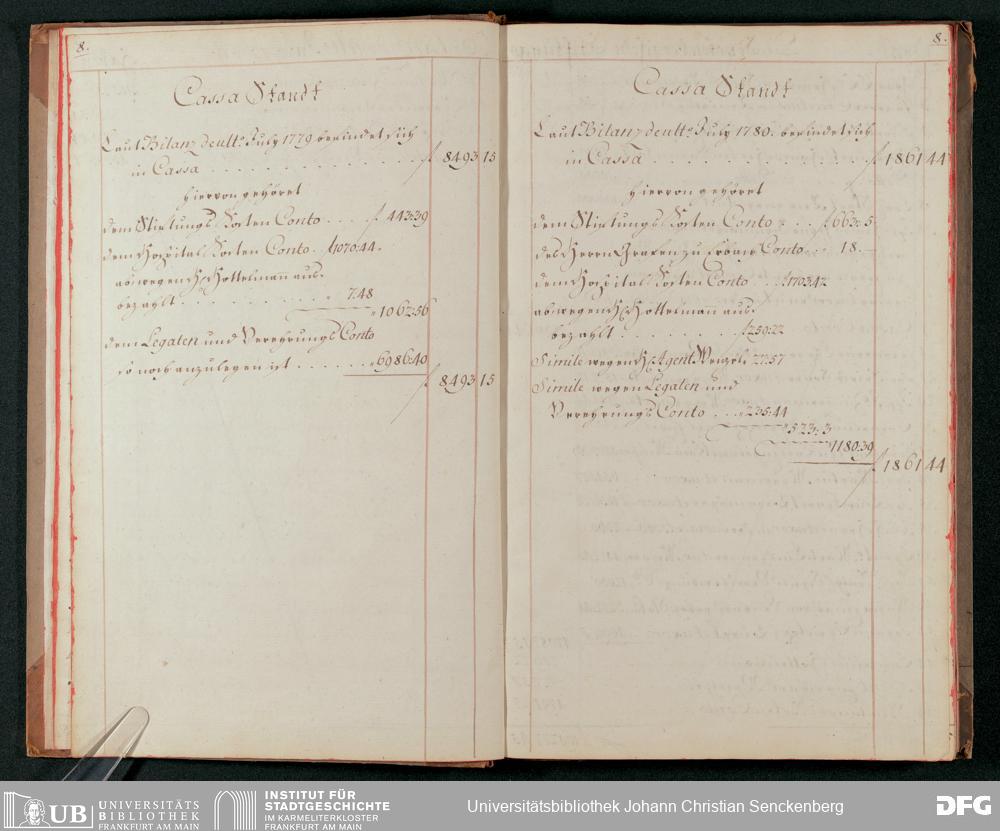 8.
Cassa Standt
Laut Bilanz de ult.º July 1779 befindet sich
in Cassa . . . . . . . . . . . . . . . f 8493 15
hiervon gehöret
dem Stiftungs Kosten Conto . . . . f 443:39
dem Hospital Kosten Conto . f 1070:44.
ab wegen H. Hottelmañ aus.
bezahlt . . . . . . . . . " 7.48
" 1062:56
dem Legaten und Verehrungs Conto
so noch anzulegen ist . . . . . . " 6986:40
f 8493 15
8.
Cassa Standt
Laut Bilanz de ult.º July 1780. befindet sich
in Cassa . . . . . . . . . . . . . . f 1861 44
hiervon gehöret
dem Stiftungs Kosten Conto . . . f 663:5
des Herrn Grafen zu Erbach Conto . . 18.—
dem Hospital Kosten Conto . . f 1703:42
ab wegen H. Hottelmañ aus.
bezahlt . . . . . . . f 259:22
Simile wegen H. Agent Wenzel " 27:57
Simile wegen Legaten und
Verehrungs Conto . . . " 235:44
" 523:3
" 1180:39
f 1861 44
UB
UNIVERSITÄTS
BIBLIOTHEK
FRANKFURT AM MAIN
INSTITUT FÜR
STADTGESCHICHTE
IM KARMELITERKLOSTER
FRANKFURT AM MAIN
Universitätsbibliothek Johann Christian Senckenberg
DFG